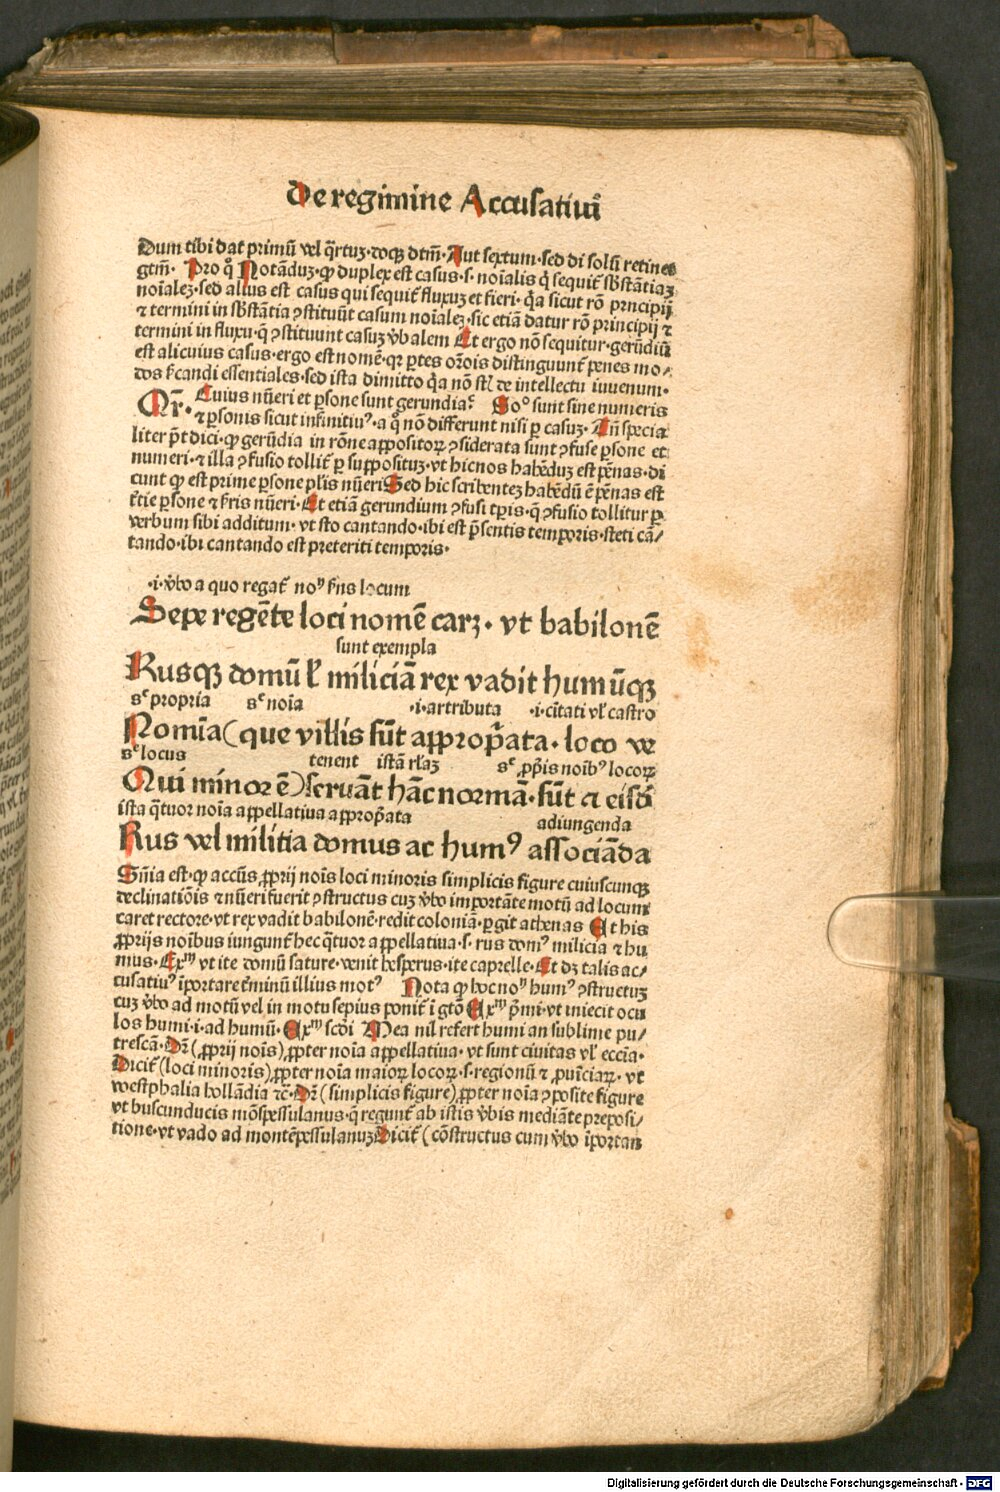 De regimine Accusatiui
Dum tibi dat primū vel q̄rtuꝫ·doqꝫ dtm̄·Aut sextum·sed di solū retines
gtm̄· Pro q̊ Notāduꝫ·ꝙ duplex est casus·s·noīalis q̄ sequit̄ sb̄stātiaꝫ
noīaleꝫ·sed alius est casus qui sequit̄ fluxuꝫ et fieri· q̄a sicut rō prncipij
⁊ termini in sb̄stātia ꝯstituūt casum noīaleꝫ·sic etiā datur rō principij ⁊
termini in fluxu·q̄ ꝯstituunt casuꝫ v̄balem Et ergo nō sequitur·gerūdiū
est alicuius casus·ergo est nomē·qꝛ ꝑtes or̄ois distingunnt̄ penes mo⸗
dos ẜcandi essentiales·sed ista dimitto q̄a nō st̄ de intellectu iuuenum·
Qr̄· Cuius nūeri et ꝑsone sunt gerundia? So° sunt sine numeris
⁊ ꝑsonis sicut infinitiuꝰ·a q̊ nō differunt nisi ꝑ casuꝫ· Tn̄ specia
liter p̄t dici·ꝙ gerūdia in rōne appositoꝝ ꝯsiderata sunt ꝯfuse ꝑsone et
numeri·⁊ illa ꝯfusio tollit̄ ꝑ suppositūꝫ·vt hic nos habēduꝫ est pēnas·di
cunt ꝙ est prime ꝑsone pl̄is nūeri Sed hic scribentez habēdū ē pēnas est
t̄tie ꝑsone ⁊ ẜris nūeri· Et etiā gerundium ꝯfusi tꝑis·q̄ ꝯfusio tollitur ꝑ
verbum sibi additum· vt sto cantando·ibi est p̄sentis temporis·steti cā⸗
tando·ibi cantando est preteriti temporis·
·i·v̄bo a quo regat̄ noꝰ ẜns locum
Sepe regēte loci nomē carꝫ· vt babilonē
sunt exempla
Rusqꝫ domū ł miliciā rex vadit humūqꝫ
sꝫ propria sꝫ noīa ·i·artributa ·i·cītati vł castro
Nomīa(que villis sūt approp̄ata· loco ve
sꝫ locus tenent istā rłaꝫ sꝫ ꝓp̄is noībꝰ locoꝝ
Qui minor ē)seruāt hāc normā·sūt ⁊ eisdē
ista q̄tuor noīa appellatiua approp̄ata adiungenda
Rus vel militia domus ac humꝰ associāda
Sn̄ia est·ꝙ accūs ꝓprij noīs loci minoris simplicis figure cuiuscunqꝫ
declinatiōis ⁊ nūeri fuerit ꝯstructus cuꝫ v̄bo importāte motū ad locum
caret rectore·vt rex vadit babilonē·redit coloniā·ꝑgit athenas Et his
ꝓprijs noībus iungunt̄ hec q̄tuor appellatiua·s·rus domꝰ milicia ⁊ hu
mus·Exᵐ vt ite domū sature·venit hesperus·ite capelle·Et dꝫ talis ac⸗
cusatiuꝰ īportare t̄minū illius motꝰ Nota ꝙ hoc noꝰ humꝰ ꝯstructuꝫ
cuꝫ v̄bo ad motū vel in motu sepius ponit̄ ī gtō Exᵐ p̄mi·vt iniecit ocu
los humi·i·ad humū· Exᵐ scd̄i Mea nil refert humi an sublime pu⸗
trescā·Dr̄(ꝓprij noīs)ꝓpter noīa appellatiua·vt sunt ciuitas vł eccīa·
Dicit̄ (loci minoris)ꝓpter noīa maioꝝ locoꝝ·s·regionū ⁊ ꝓuīciaꝝ· vt
westphalia hollādia ⁊c̄·Dr̄ (simplicis figure)ꝓpter noīa ꝯposite figure
vt buscunducis mōspessulanus·q̄ regunt̄ ab istis v̄bis mediāte preposi⸗
tione·vt vado ad montēpessulanuꝫ Dicit̄ (cōstructus cum v̄bo īportan
Digitalisierung gefördert durch die Deutsche Forschungsgemeinschaft - DFG